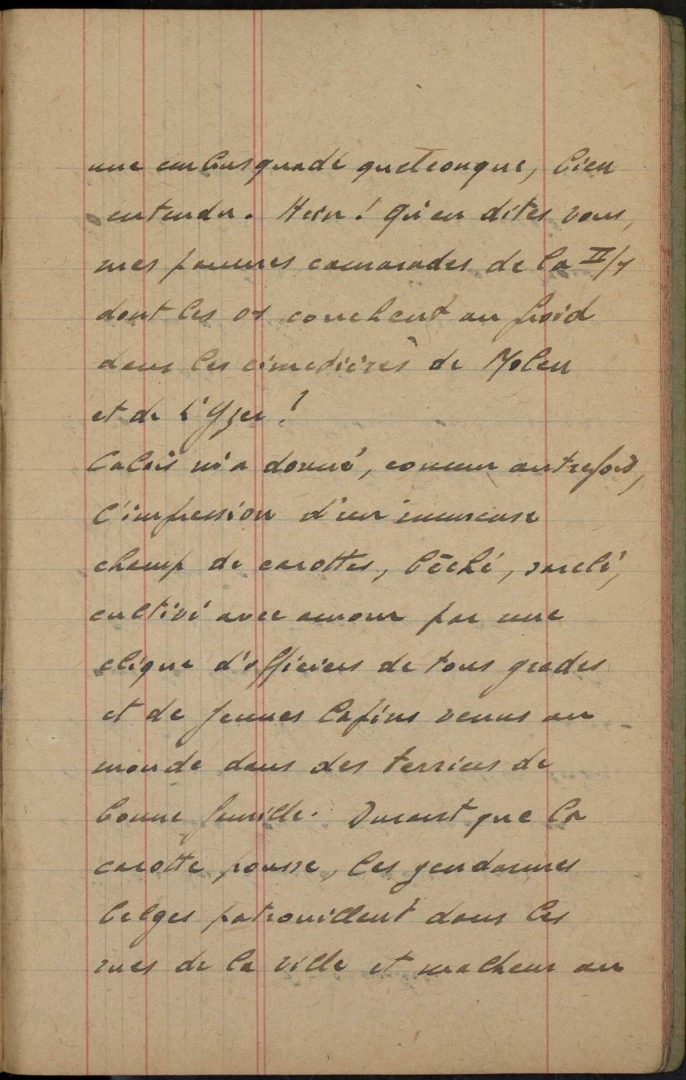 une embusquade quelconque, bien
entendu. Hein! Qu'en dites vous,
mes pauvres camarades de la II/7
dont les os couchent au froid
dans les cimetières de Molen
et de l'Yser!
Calais m'a donné, comme autrefois,
l'impression d'un immense
champ de carottes, bêché, sarclé,
cultivé avec amour par une
clique d'officiers de tous grades
et de jeunes lapins venus au
monde dans des terriers de
bonne famille. Durant que la
carotte pousse, les gendarmes
belges patrouillent dans les
rues de la ville et malheur au